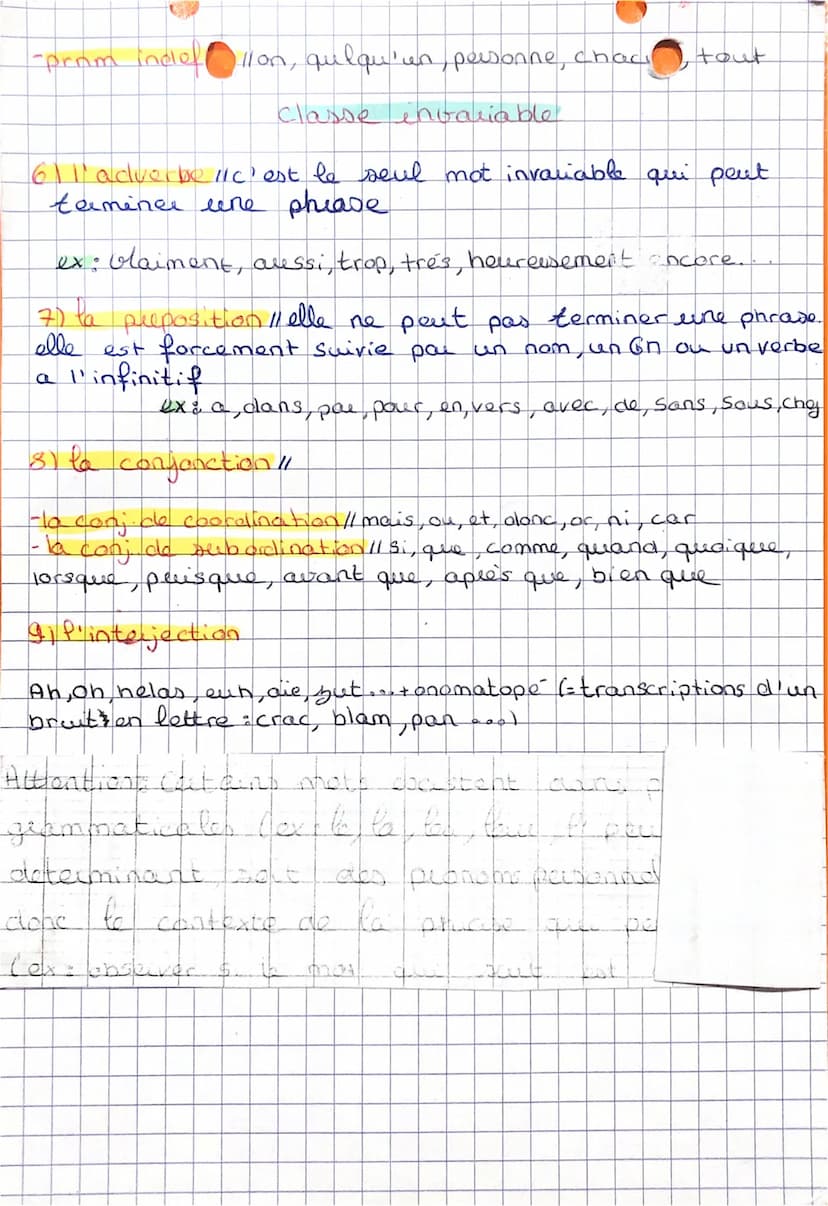 -prnm indef // on, qulqu'un, personne, chac, tout
Classe invariable
6) l'adverbe // c'est le seul mot invariable qui peut
terminer une phrase
ex: vraiment, aussi, trop, trés, heureusement encore...
7) la preposition // elle ne peut pas terminer une phrase.
elle est forcement suivie par un nom, un Gn ou un verbe
a l'infinitif
ex: a, dans, par, pour, en, vers, avec, de, sans, sous, chez
8) la conjonction //
-la conj. de coordination // mais, ou, et, donc, or, ni, car
- la conj de subordination // si, que, comme, quand, quoique,
lorsque, puisque, avant que, après que, bien que
9) l'interjection
Ah, Oh, helas, euh, aie, zut ... + onomatope (= transcriptions d'un
bruit en lettre : crac, blam, pan ...)
Attention: Certains mots existent dans p
grammaticales (ex: le, la, les, leur peu
determinant, soit des pronoms personnel
donc le contexte de la phrase qui pe
(ex: observer si le mot qui suit est